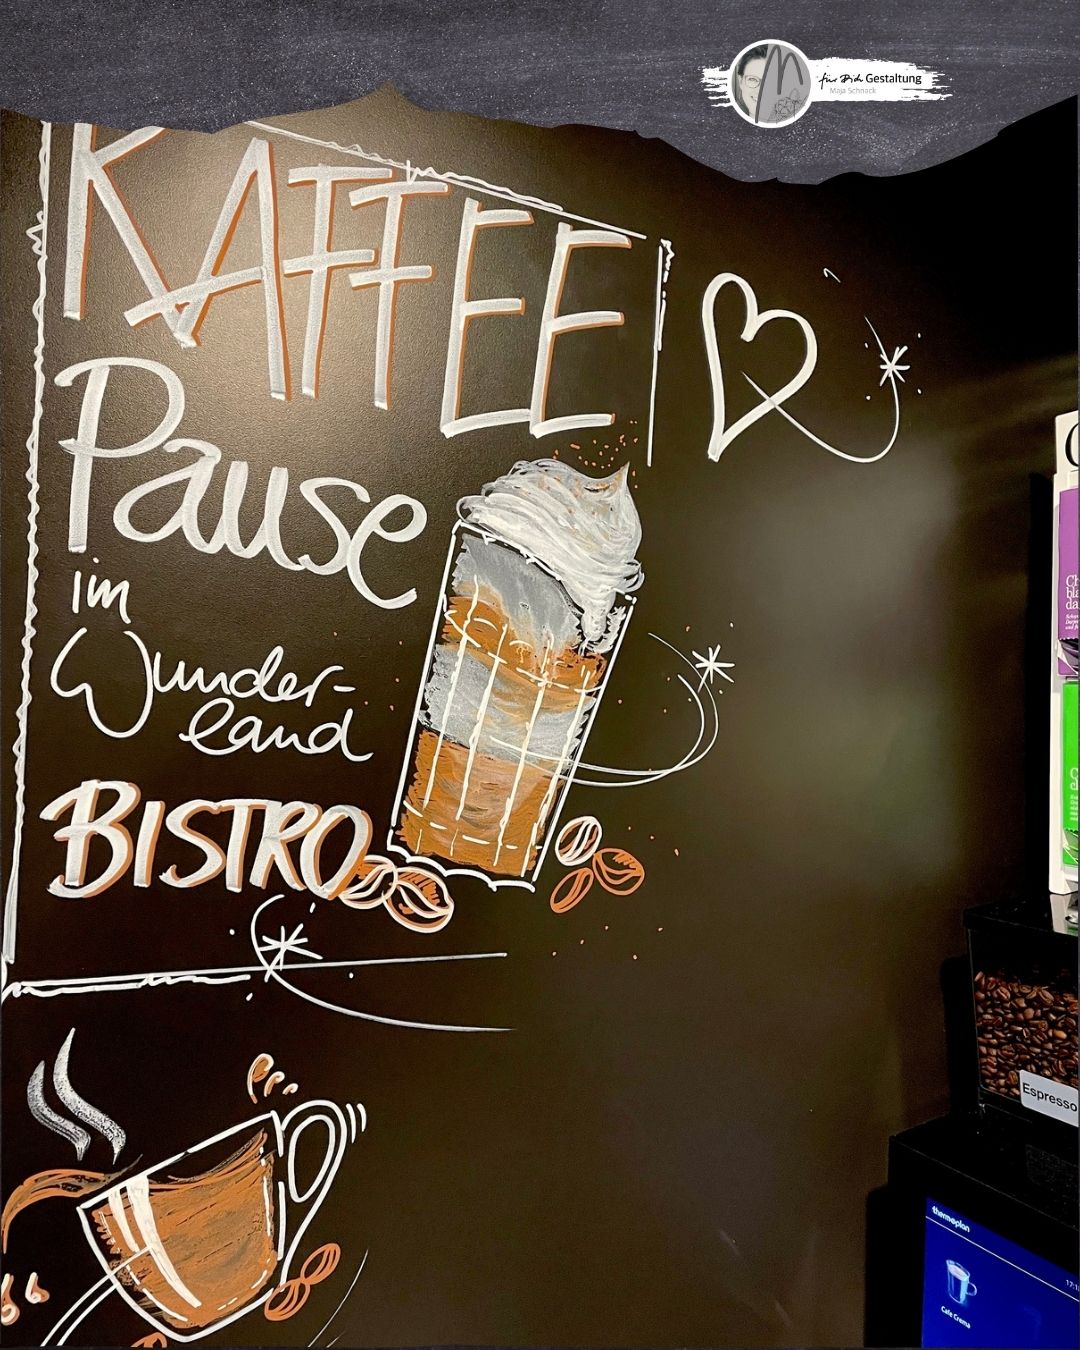 für Dich Gestaltung
Maja Schnack
KAFFEE
Pause
im
Wunder-
land
BISTRO
Espresso
thermoplan
Cafe Crema